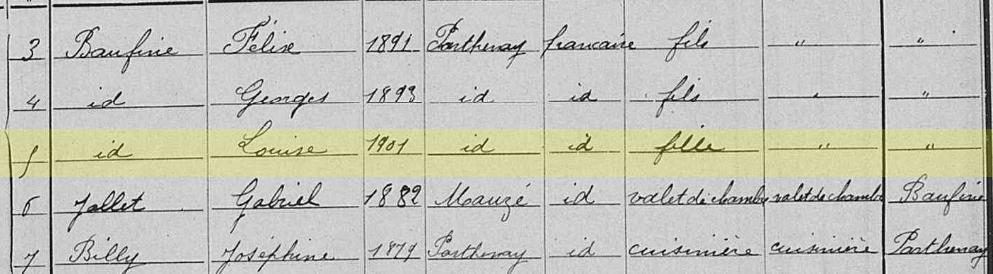 3 Baufine Félix 1891 Parthenay francaise fils " "
4 id Georges 1893 id id fils " "
5 id Louise 1901 id id fille " "
6 Jollet Gabriel 1882 Mauzé id valet de chambre valet de chambre Baufine
7 Billy Joséphine 1879 Parthenay id cuisinière cuisinière Parthenay